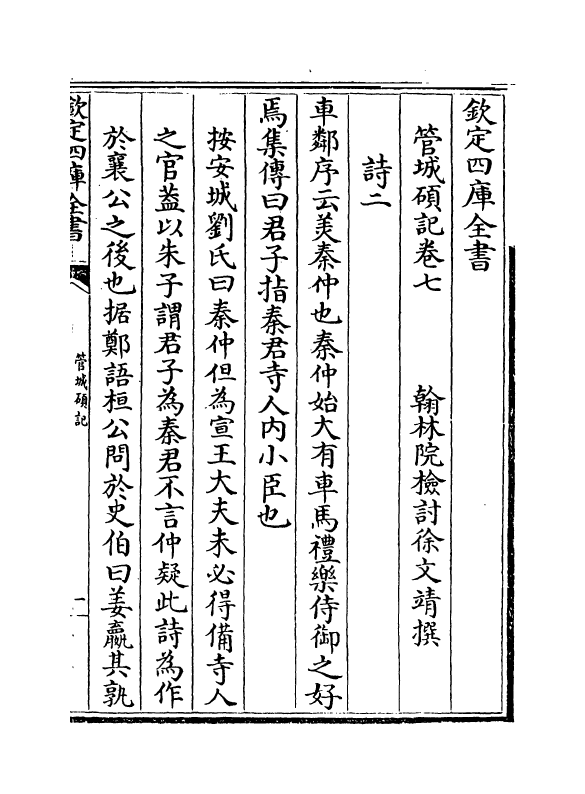 欽定四庫全書
管城碩記卷七　　　翰林院檢討徐文靖撰
詩二
車鄰序云美秦仲也秦仲始大有車馬禮樂侍御之好
焉集傳曰君子指秦君寺人内小臣也
按安城劉氏曰秦仲但為宣王大夫未必得備寺人
之官蓋以朱子謂君子為秦君不言仲疑此詩為作
於襄公之後也据鄭語桓公問於史伯曰姜嬴其孰
欽定四庫全書
管城碩記
一